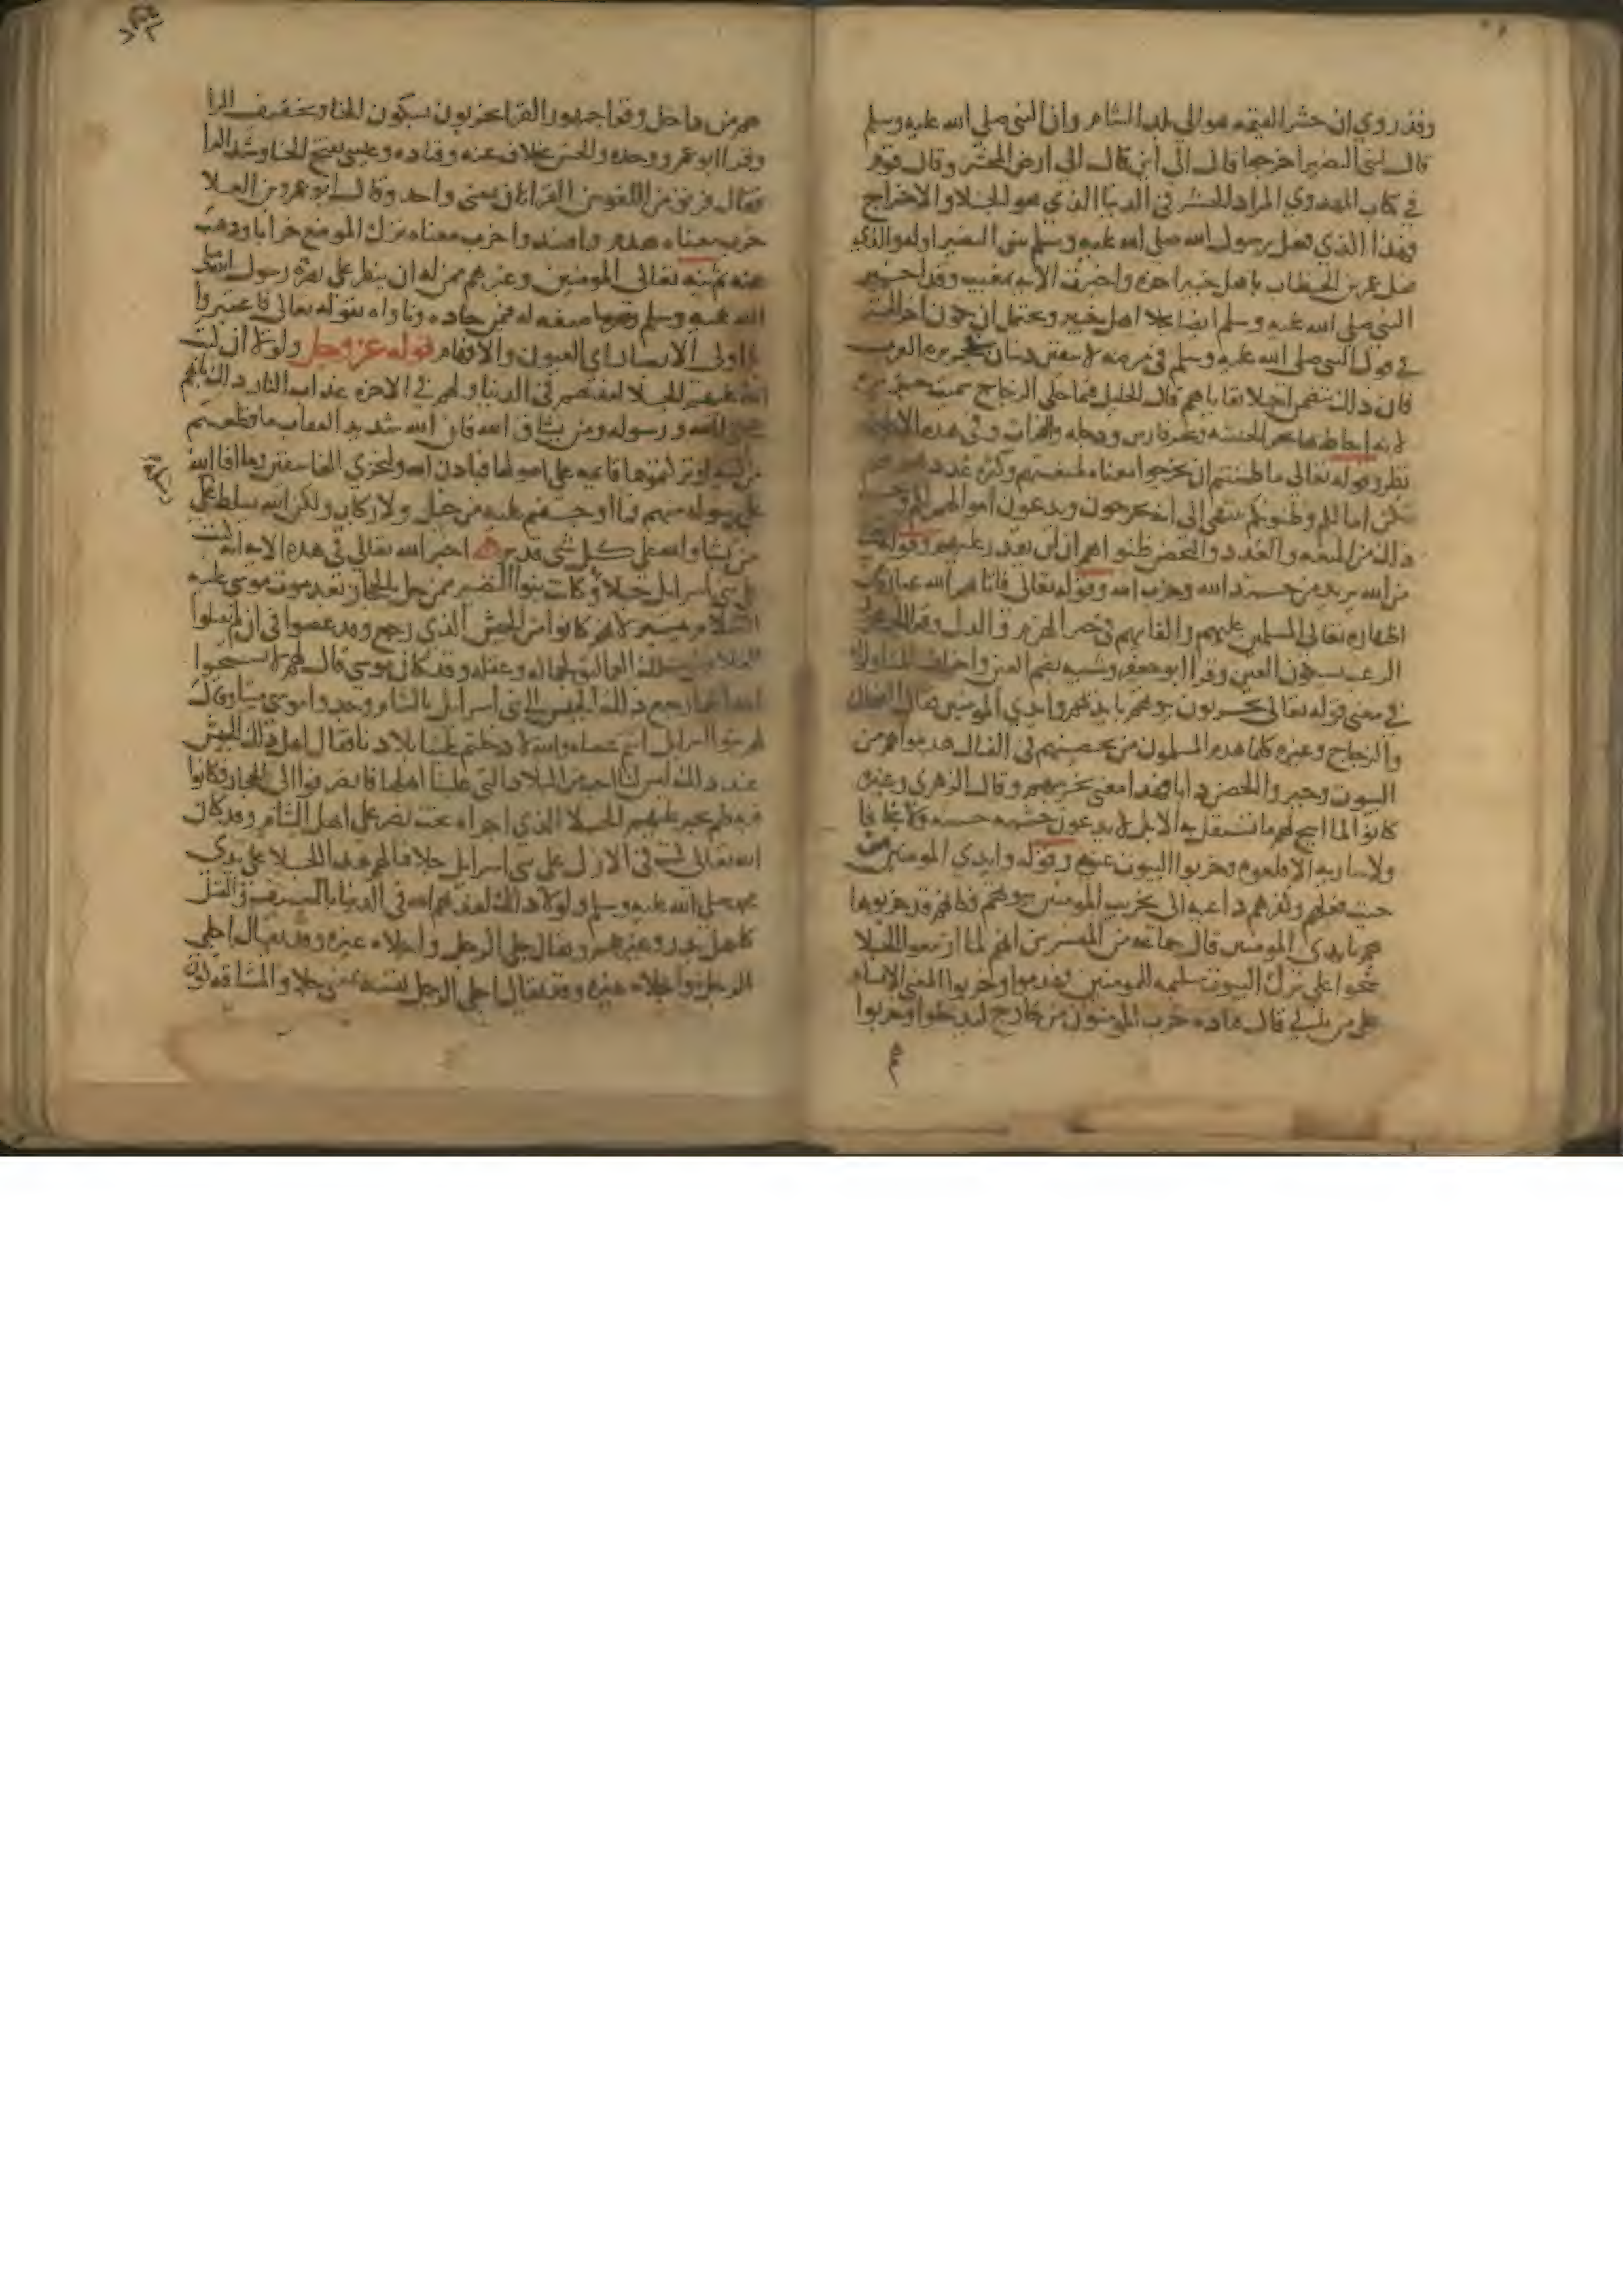 وقد روي ان حشر القيمه هو الى بلد الشام وان النبي صلى الله عليه وسلم
قال لبني النضير اخرجوا قالوا الى اين قال الى ارض المحشر وقال قوم
في كتاب المهدوي المراد الحشر في الدنيا الذي هو الجلا والاخراج
فهذا الذي فعل رسول الله صلى الله عليه وسلم ببني النضير اوله والذي
فعل عمر بن الخطاب باهل خيبر اخره واخبرت الايه بمغيب وقد اخبر
النبي صلى الله عليه وسلم ايضا بجلا اهل خيبر ويحتمل ان يكون اخر الحشر
في قول النبي صلى الله عليه وسلم في مرضه لا يبقين دينان بجزيره العرب
فان ذلك يتضمن اجلا بقاياهم قال الخليل فيما حكى الزجاج سميت جزيره
لانه احاط بها بحر الحبشه وبحر فارس ودجله والفرات وفي هذه الاحاطه
نظر وقوله تعالى ما ظننتم ان يخرجوا معناه لمنعتهم وكثره عددهم
تكن امالكم وظنونكم تنتهي الى انهم يخرجون ويدعون اموالهم لكم
ذلك من المنعه والعدد والتحصن ظنوا هم ان لن يقدر عليهم وقوله
من الله يريد من جند الله وحزب الله وقوله تعالى فاتاهم الله عباره عن
اظهاره تعالى المسلمين عليهم والقايهم في حيز الهزم والذل وقرا
الرعب بسكون العين وقرا ابو جعفر وشيبه بضم العين واختلف
في معنى قوله تعالى يخربون بيوتهم بايديهم وايدي المومنين فقال الضحاك
والزجاج وغيره كلما هدم المسلمون من تحصينهم في القتال هدموا هم من
البيوت وجبروا الحصن دابا فهذا معنى تخريبهم وقال الزهري وغيره
كانوا لما ابيح لهم ما تستقل به الابل لا يدعون خشبه حسنه ولا نجافا
ولا ساريه الا قلعوه وخربوا البيوت عنه وقوله وايدي المومنين من
حيث فعلهم وكفرهم داعيه الى تخريب المومنين بيوتهم فكانهم قد خربوها
هم بايدي المومنين قال جماعه من المفسرين انهم لما ازمعوا الجلا
شحوا على ترك البيوت سليمه للمومنين فهدموا وخربوا لمعنى الافساد
على من ياتي قال قتاده خرب المومنون من خارج ليدخلوا وخربوا
هم
هم من داخل وقرا جمهور القرا يخربون بسكون الخا وتخفيف الرا
وقرا ابو عمرو وحده والحسن بخلاف عنه وقتاده وعيسى بفتح الخا وشد الرا
فقال فريق من اللغويين القراتان بمعنى واحد وقال ابو عمرو بن العلا
خرب معناه هدم وافسد واخرب معناه ترك الموضع خرابا وذهب
عنه ثم نبه تعالى المومنين وغيرهم ممن له ان ينظر على نصره رسول الله صلى
الله عليه وسلم وصنعه له فيمن حاده وناواه بقوله تعالى فاعتبروا
يا اولي الابصار اي العيون والافهام قوله عز وجل ولولا ان كتب
الله عليهم الجلا لعذبهم في الدنيا ولهم في الاخره عذاب النار ذلك بانهم
شاقوا الله ورسوله ومن يشاق الله فان الله شديد العقاب ما قطعتم
من لينه او تركتموها قايمه على اصولها فباذن الله وليخزي الفاسقين وما افا الله
على رسوله منهم فما اوجفتم عليه من خيل ولا ركاب ولكن الله يسلط
من يشا والله على كل شي قدير اخبر الله تعالى في هذه الايه انه كتب
على بني اسرايل جلا وكانت بنوا النضير ممن حل بالحجاز بعد موت موسى عليه
السلام بيسير لانهم كانوا من الجيش الذي رجع وقد عصوا في ان لم يقتلوا
الغلام ابن ملك العماليق لجماله وعقله وقد كان موسى قال لهم لا تستحيوا
احدا فلما رجع ذلك الجيش الى بني اسرايل بالشام وجدوا موسى ميتا وقال
لهم بنوا اسرايل انتم عصاه والله لا دخلتم علينا بلادنا فقال اهل ذلك الجيش
عند ذلك ليس لنا احب من البلاد التي غلبنا اهلها فانصرفوا الى الحجاز فكانوا
فيه فلم يجر عليهم الجلا الذي اجراه بخت نصر على اهل الشام وقد كان
الله تعالى كتب في الازل على بني اسرايل جلا فنالهم هذا الجلا على يدي
محمد صلى الله عليه وسلم ولولا ذلك لعذبهم الله في الدنيا بالسيف والقتل
كاهل بدر وغيرهم ويقال جلى الرجل واجلاه غيره وقد يقال اجلى
الرجل واجلاه غيره وقد يقال اجلى الرجل نفسه بمعنى جلا والمشاقه